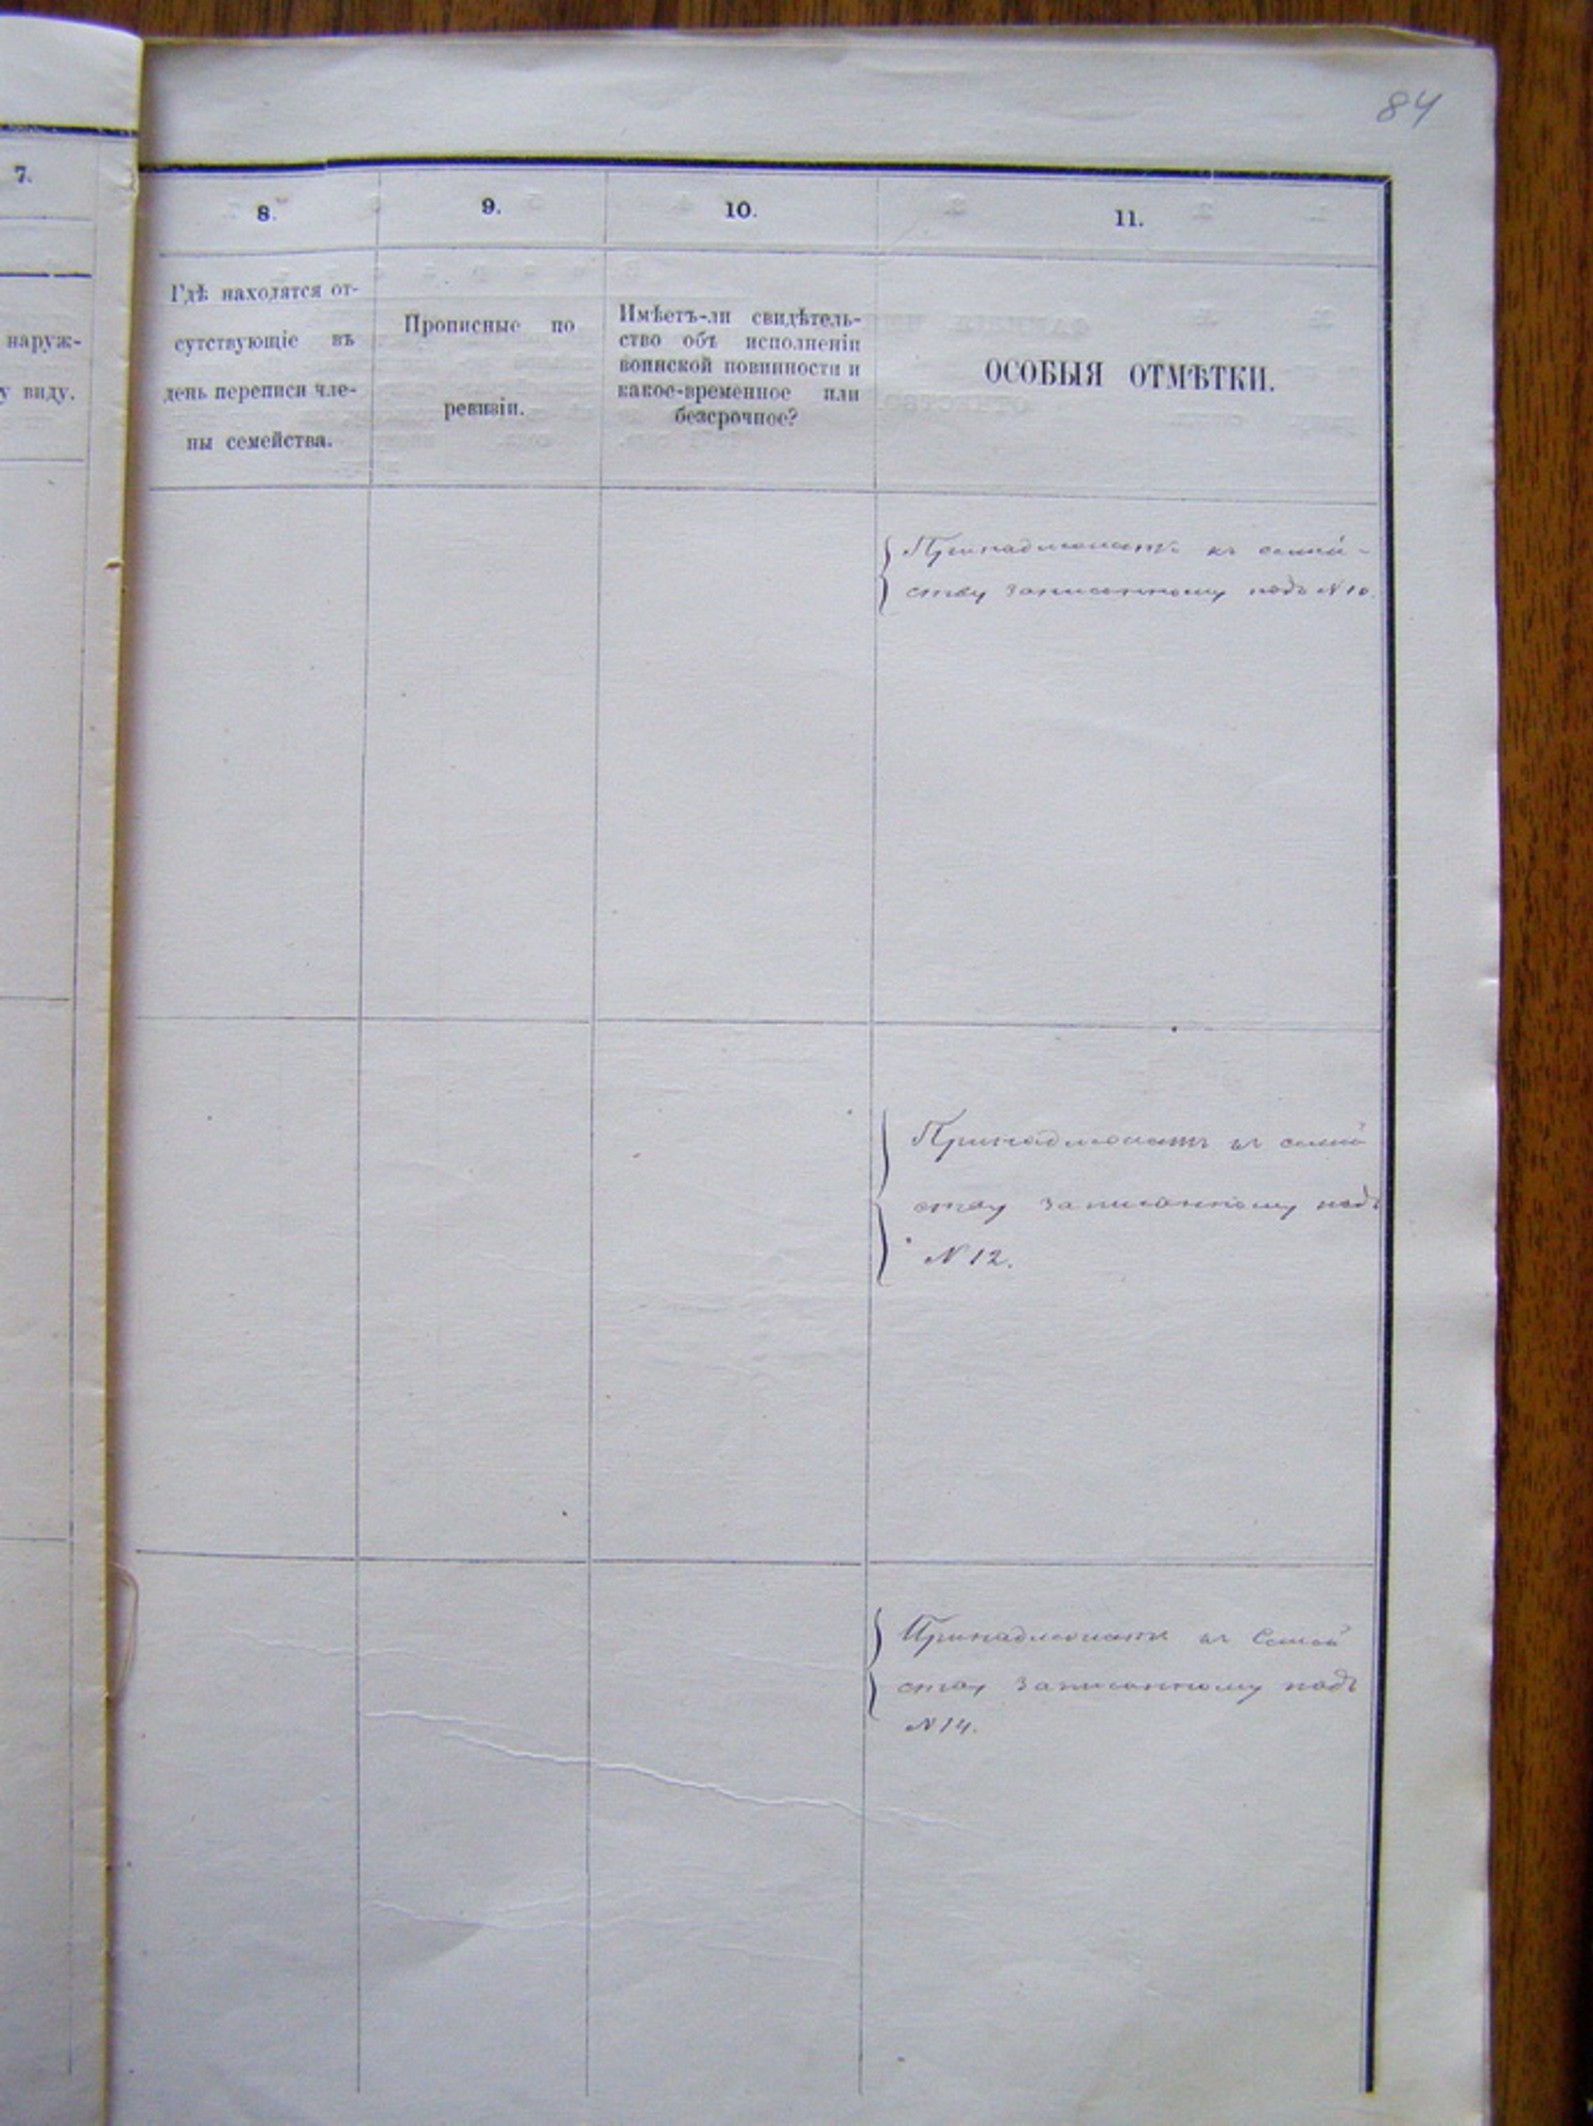 84
7.
наруж-
у виду.
8.
9.
10.
11.
Гдѣ находятся от-
сутствующіе въ
день переписи чле-
ны семейства.
Прописные по
ревизіи.
Имѣетъ-ли свидѣтель-
ство объ исполненіи
воинской повинности и
какое-временное или
безсрочное?
ОСОБЫЯ ОТМѢТКИ.
Принадлежатъ къ семей-
ству записанному подъ № 10.
Принадлежатъ къ семей
ству записанному подъ
№ 12.
Принадлежатъ къ Семей
ству записанному подъ
№ 14.